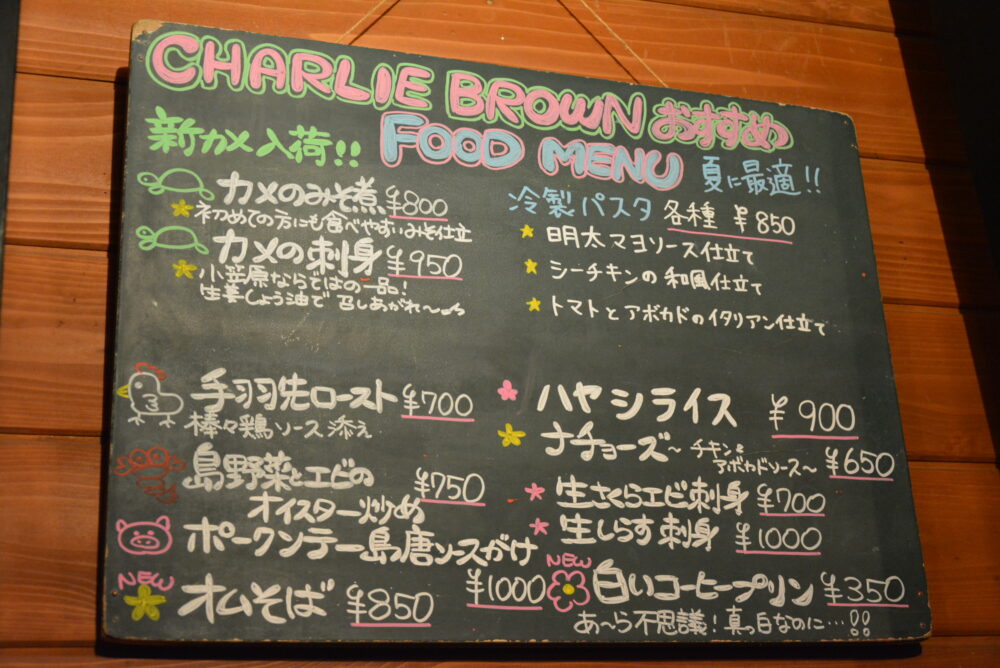 CHARLIE BROWN おすすめ
FOOD MENU
新カメ入荷!!
カメのみそ煮 ¥800
初めての方にも食べやすいみそ仕立
カメの刺身 ¥950
小笠原ならではの一品!
生姜しょう油で召しあがれ〜
手羽先ロースト ¥700
棒々鶏ソース添え
島野菜とエビの
オイスター炒め ¥750
ポークソテー島唐ソースがけ
¥1000
NEW
オムそば ¥850
夏に最適!!
冷製パスタ 各種 ¥850
明太マヨソース仕立て
シーチキンの和風仕立て
トマトとアボカドのイタリアン仕立て
ハヤシライス ¥900
ナチョーズ〜チキン&
アボカドソース〜 ¥650
生さくらエビ刺身 ¥700
生しらす刺身 ¥1000
NEW
白いコーヒープリン ¥350
あ〜ら不思議!真っ白なのに…!!